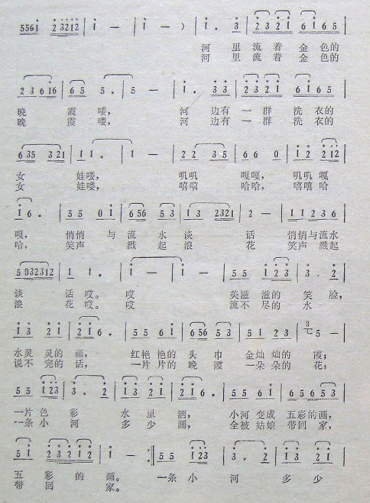 5561 23212 | 1 — | 1 — ) | 1 . 3 | 2321 6165 |
河 里 流着 金色的
河 里 流着 金色的
23616 | 65 5 . | 5 — | 1 . 33 | 2321 6165 |
晚 霞 喽， 河 边有 一 群 洗 衣的
晚 霞 喽， 河 边有 一 群 洗 衣的
635 321 | 1 1 . | 1 — | 22 35 | 66 0 | 12 212 |
女 娃喽， 叽叽 嘎嘎， 叽叽 嘎
女 娃喽， 嘻嘻 哈哈， 嘻嘻 哈
16 . | 55 01 | 656 53 | 13 2321 | 2 — | 11236 |
嘎， 悄悄 与 流 水 谈 话 悄悄与流水
哈， 笑声 溅 起 浪 花 笑声 溅起
5032312 | 1 1 . | 1 — | 1 — | 55 123 | 3 . 2 |
谈 话 哎。 哎 美滋滋的 笑 脸，
浪 花 哎。 哎 流不尽的 水
13 21 | 216 . | 55 61 | 665 5 | 51 23 | 5 — |
水灵 灵的 画， 红艳 艳的 头 巾 金灿 灿的 霞；
说不 完的 话， 一片 片的 晚 霞 一朵 朵的 花；
55 123 | 3 . 2 | 13 21 | 216 . | 55 61 | 65653 |
一片 色 彩 水 里 洒， 小河 变成 五彩的画，
一条 小 河 多 少 画， 全被 姑娘 带回 家，
5 3 | 23212 | 1 — :| 55 123 | 3 . 2 | 13 21 |
五 彩 的 画。 一条 小 河 多 少
带 回 家。